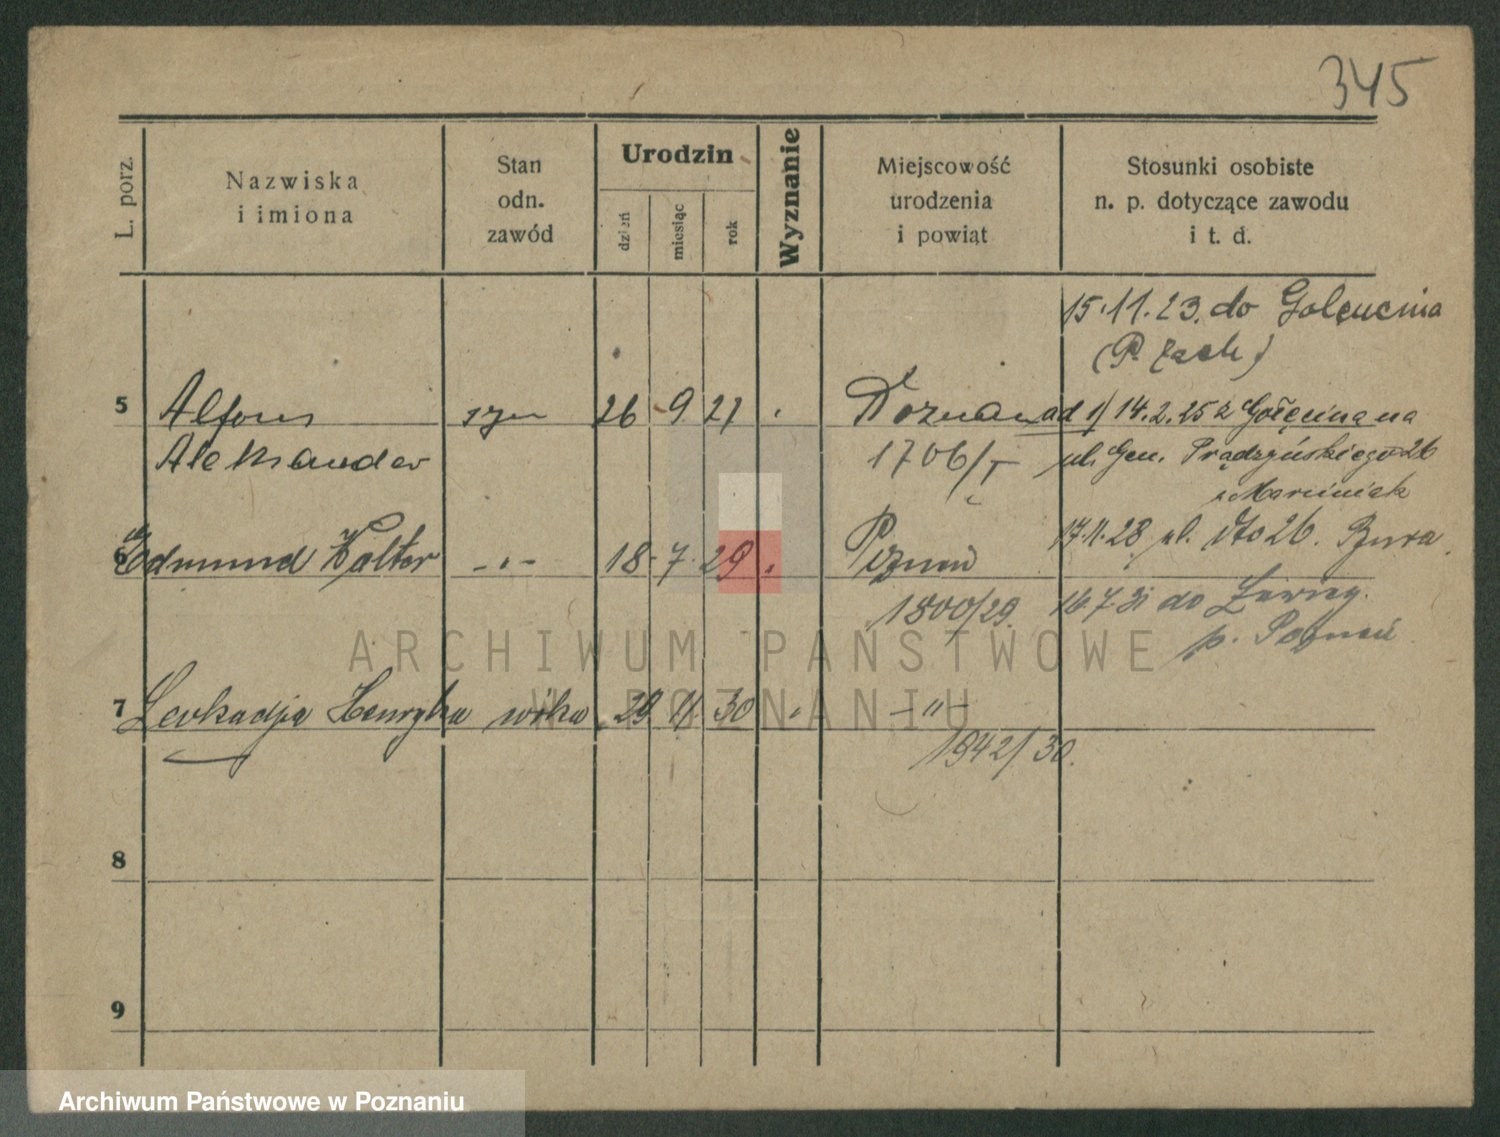 345
L. porz.
Nazwiska
i imiona
Stan
odn.
zawód
Urodzin
dzień
miesiąc
rok
Wyznanie
Miejscowość
urodzenia
i powiąt
Stosunki osobiste
n. p. dotyczące zawodu
i t. d.
15.11.23. do Golęcina
(P. zach)
5 Alfons syn 26 9 21 Poznań ad 1) 14.2.25 z Gołęcina na
Aleksander 1706/I ul. Gen. Prądzyńskiego 26
Marciniak
17.11.28 ul. dto 26.
6 Edmund Walter -"- 18. 7. 29 Poznań
1800/29. 16.7.31 do
p. Poznań
7 Leokadja Henryka córka 29. 11. 30 " -"-
1942/30.
8
9
ARCHIWUM PAŃSTWOWE
W POZNANIU
Archiwum Państwowe w Poznaniu